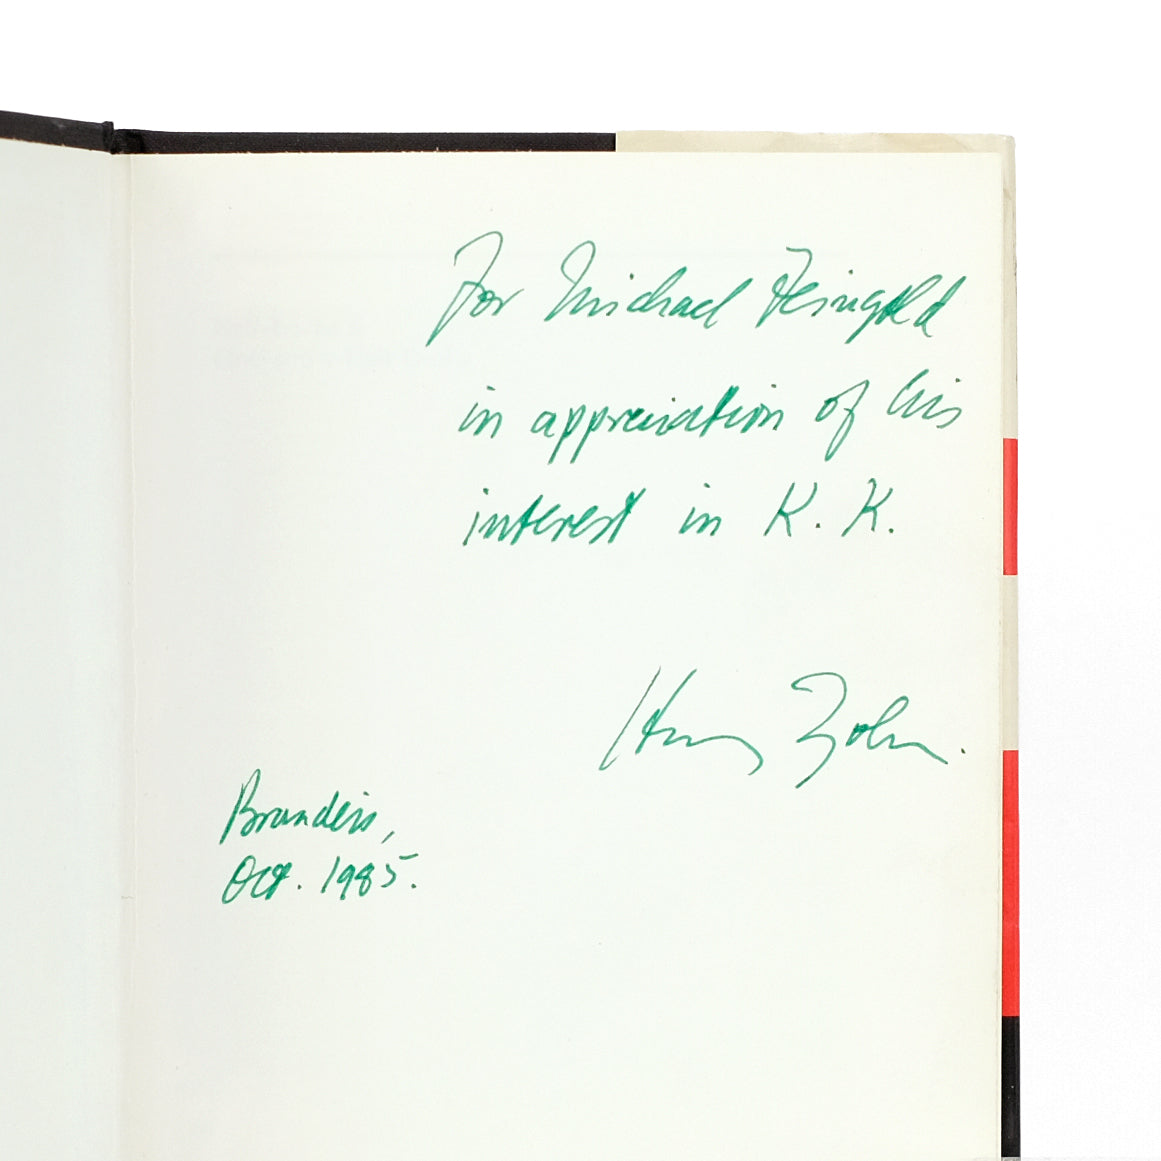 For Michael Feingold
in appreciation of his
interest in K. K.
Harry Zohn.
Brandeis,
Oct. 1985.